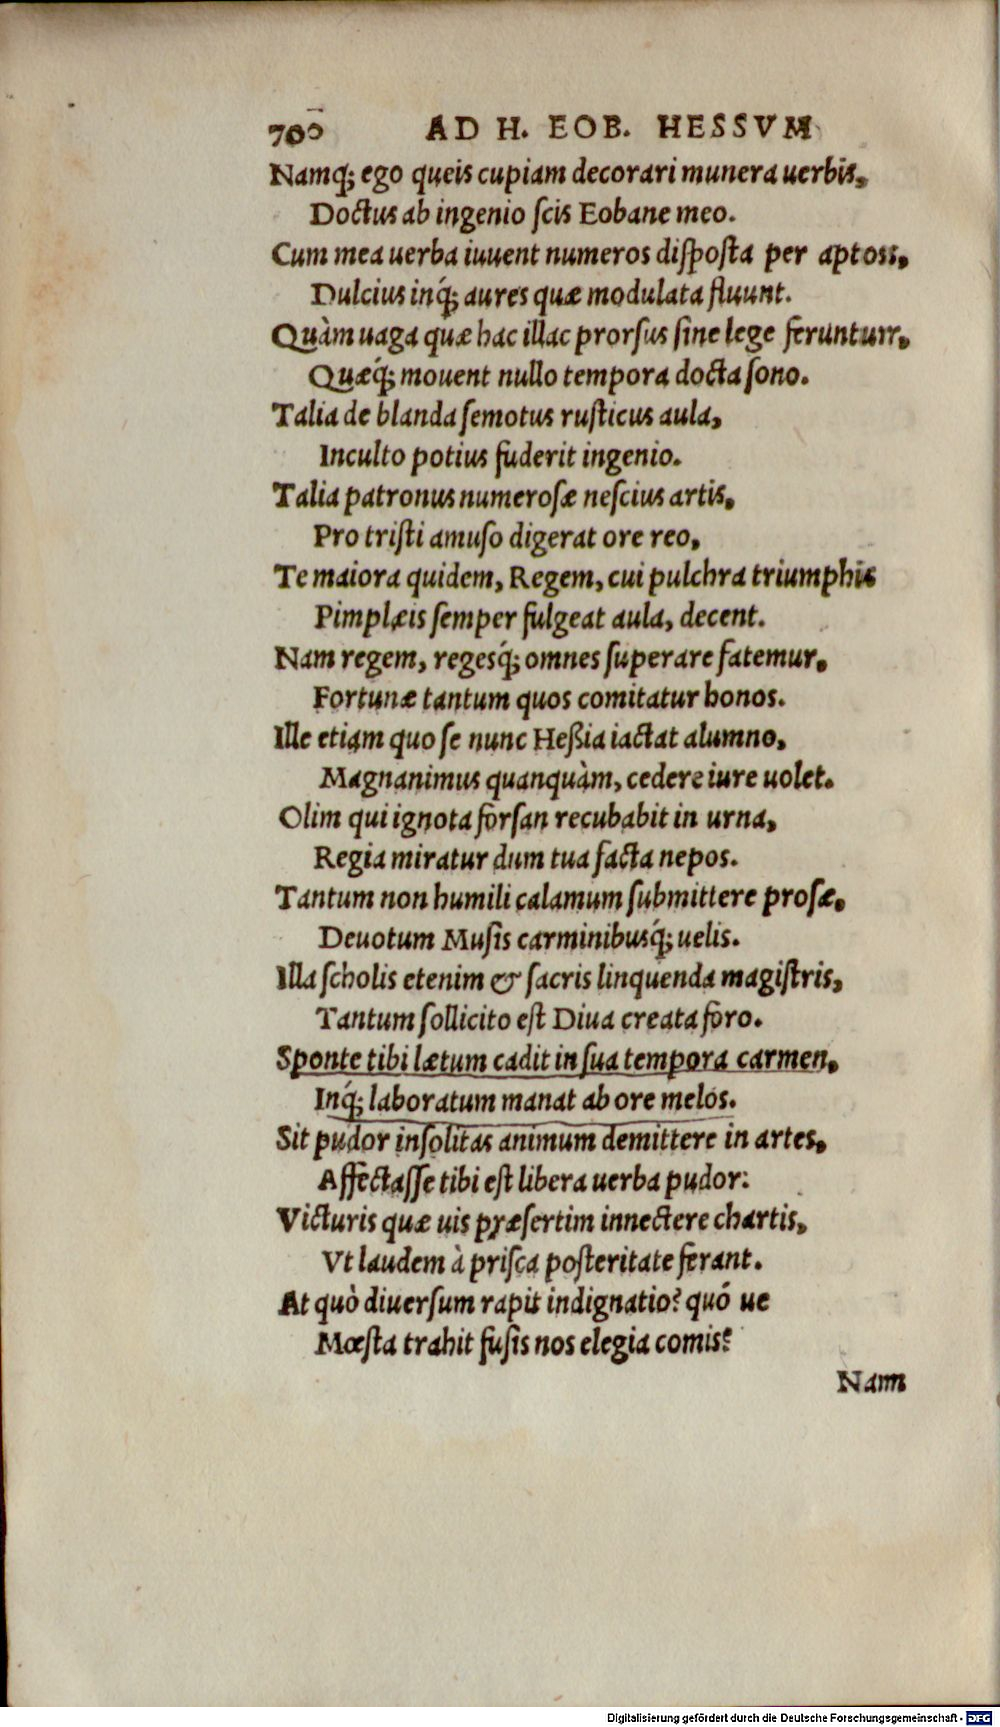 700 AD H. EOB. HESSVM
Namq́; ego queis cupiam decorari munera uerbis,
Doctus ab ingenio scis Eobane meo.
Cum mea uerba iuuent numeros disposta per aptos,
Dulcius inq́; aures quæ modulata fluunt.
Quàm uaga quæ hac illac prorsus sine lege feruntur,
Quæq́; mouent nullo tempora docta sono.
Talia de blanda semotus rusticus aula,
Inculto potius fuderit ingenio.
Talia patronus numerosæ nescius artis,
Pro tristi amuso digerat ore reo,
Te maiora quidem, Regem, cui pulchra triumphis
Pimplæis semper fulgeat aula, decent.
Nam regem, regesq́; omnes superare fatemur,
Fortunæ tantum quos comitatur honos.
Ille etiam quo se nunc Heßia iactat alumno,
Magnanimus quanquàm, cedere iure uolet.
Olim qui ignota forsan recubabit in urna,
Regia miratur dum tua facta nepos.
Tantum non humili calamum submittere prosæ,
Deuotum Musis carminibusq́; uelis.
Illa scholis etenim & sacris linquenda magistris,
Tantum sollicito est Diua creata foro.
Sponte tibi lætum cadit in sua tempora carmen,
Inq́; laboratum manat ab ore melos.
Sit pudor insolitas animum demittere in artes,
Affectasse tibi est libera uerba pudor:
Victuris quæ uis præsertim innectere chartis,
Vt laudem à prisca posteritate ferant.
At quò diuersum rapit indignatio? quó ue
Mœsta trahit fusis nos elegia comis?
Nam
Digitalisierung gefördert durch die Deutsche Forschungsgemeinschaft - DFG